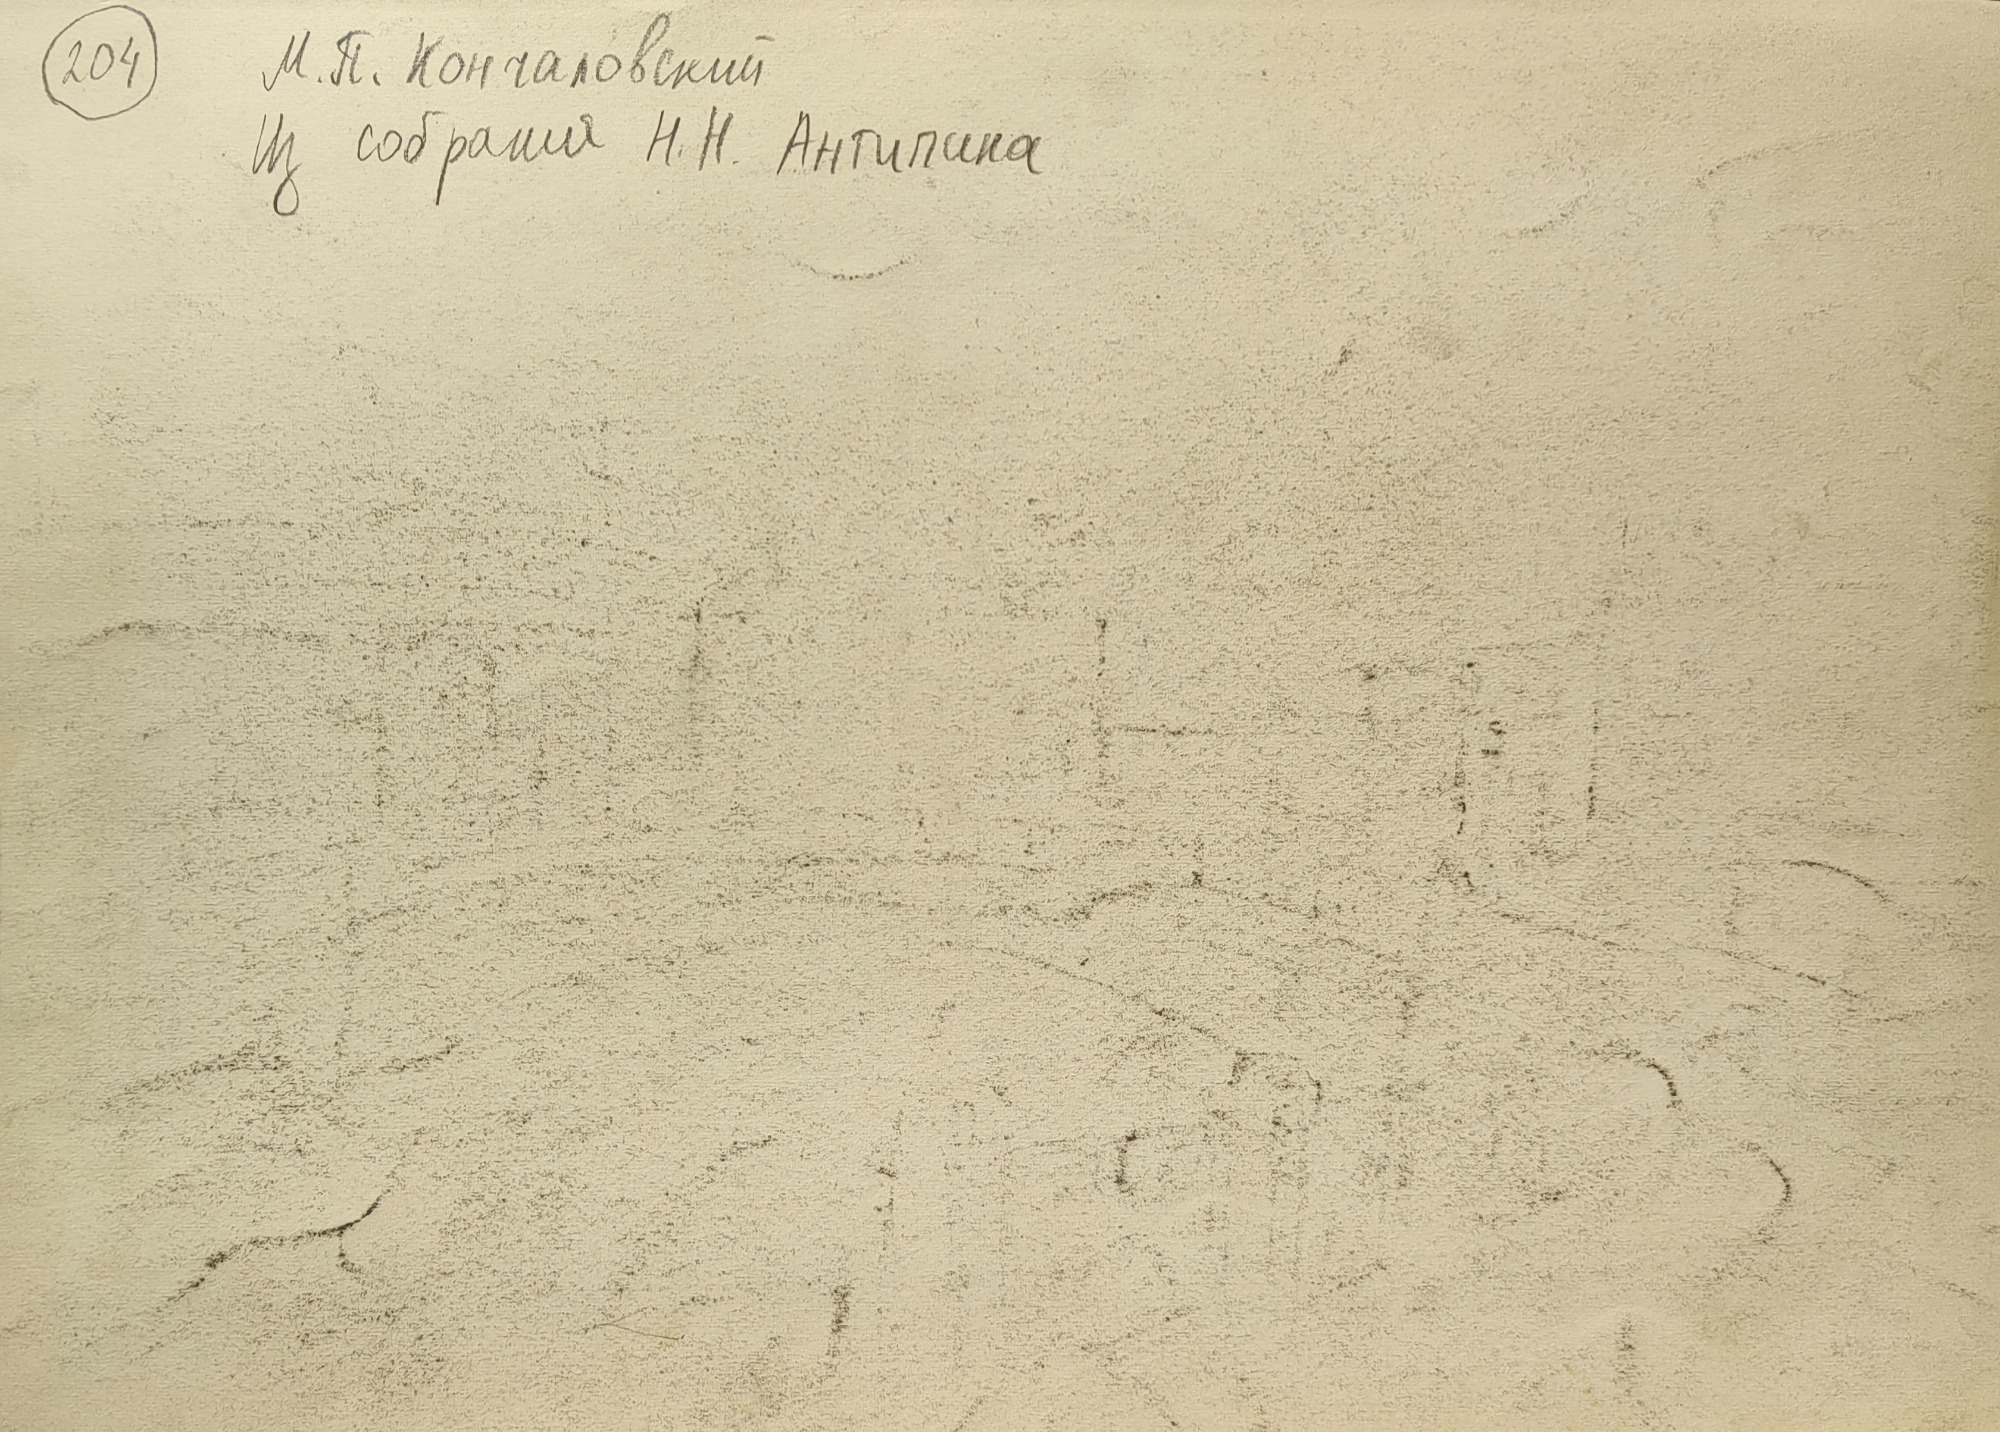 204 М.П. Кончаловский
Из собрания Н.Н. Антипина